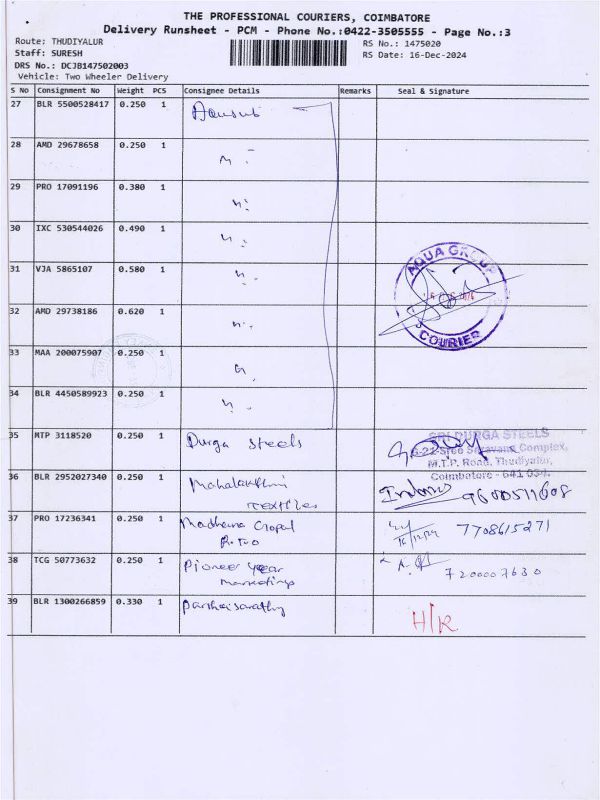 THE PROFESSIONAL COURIERS, COIMBATORE
Delivery Runsheet - PCM - Phone No.:0422-3505555 - Page No.:3
Route: THUDIYALUR
RS No.: 1475020
Staff: SURESH
RS Date: 16-Dec-2024
DRS No.: DCJB147502003
Vehicle: Two Wheeler Delivery
S No Consignment No Weight PCS Consignee Details Remarks Seal & Signature
27 BLR 5500528417 0.250 1
28 AMD 29678658 0.250 1
29 PRO 17091196 0.380 1
30 IXC 530544026 0.490 1
31 VJA 5865107 0.580 1
AQUA GROUP
COURIER
32 AMD 29738186 0.620 1
33 MAA 200075907 0.250 1
34 BLR 4450589923 0.250 1
35 MTP 3118520 0.250 1 Durga Steels
SRI DURGA STEELS
6-22 Sree Saravana Complex,
M.T.P. Road, Thudiyalur,
Coimbatore - 641 034.
36 BLR 2952027340 0.250 1 Mahalakshmi
Textiles
9600511608
37 PRO 17236341 0.250 1 Madhana Gopal
16/12/24 7708615271
38 TCG 50773632 0.250 1 Pioneer year
marketings
7200007630
39 BLR 1300266859 0.330 1 Parthasarathy
H/R